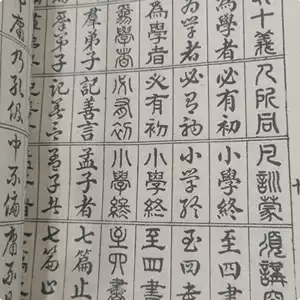 十義 人所同 凡訓蒙 須講究
為學者 必有初 小學終 至四書
為學者 必有初 小學終 至四書
為學者 必有初 小學終 至四書
為學者 必有初 小學終 至四書
羣弟子 記善言 孟子者 七篇止
羣弟子 記善言 孟子者 七篇止
中庸 乃孔伋 中不偏 庸不